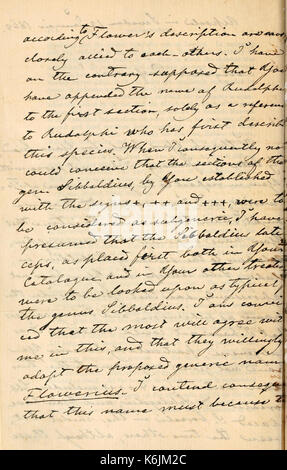 according to Flower's description are very
closely allied to each-others. I have
on the contrary supposed that You
have appended the name of Rudolphi
to the first section, solely as a reference
to Rudolphi who has first described
this species. When I consequently no
could conceive that the sections of the
gen. Sibbaldius, by You established
with the signs +, ++ and +++, were to
be considered as subgeneric, I have
presumed that the Sibbaldius lati
ceps, as placed first both in Your
Catalogue and in Your other treatise
were to be looked upon as typical
the genus Sibbaldius. I am convin
ced that the most will agree with
me in this, and that they willingly
adopt the proposed generic name
Flowerius. I contend conseque
that this name must because t
alamy
alamy stock photo
K6JM2C
www.alamy.com